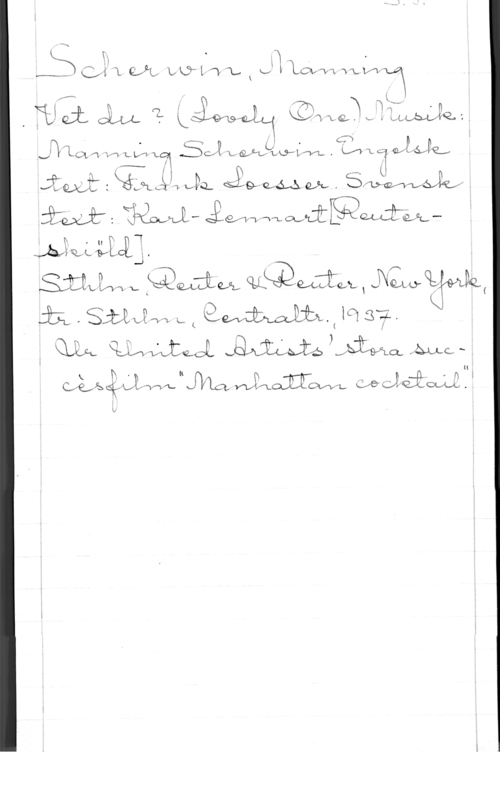 Scherwin, Manning
Vet du? (Lovely One.) Musik:
Manning Scherwin. Engelsk
text: Frank Loesser. Svensk
text: Karl-Lennart [Reuter-
skiöld].
Sthlm, Reuter & Reuter, New York,
tr. Sthlm, Centraltr., 1937.
Ur United Artists' stora suc-
cèsfilm "Manhattan cocktail".